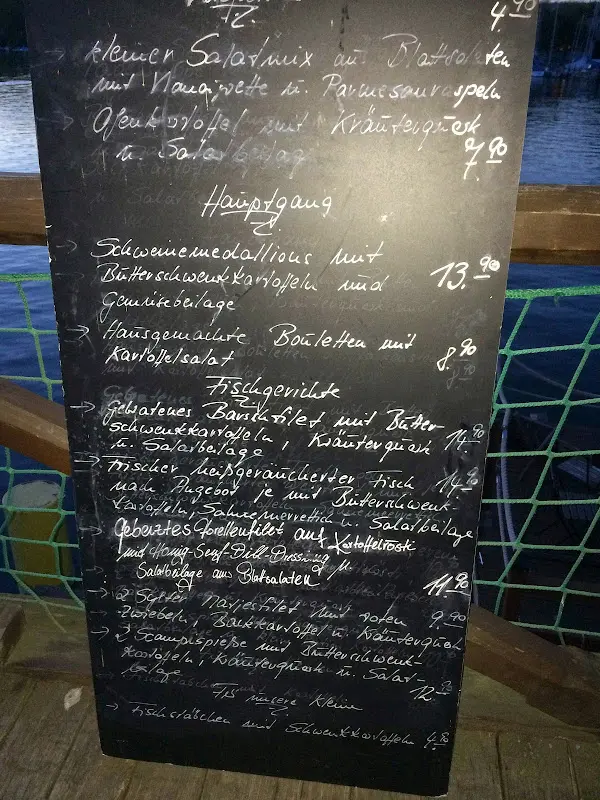 4.90
→ kleiner Salatmix an Blattsalaten
mit Vinaigrette u. Parmesanraspeln
→ Ofenkartoffel mit Kräuterquark
u. Salatbeilage 7.90
Hauptgang
→ Schweinemedallions mit
Butterschwenkkartoffeln und 13.90
Gemüsebeilage
→ Hausgemachte Bouletten mit
Kartoffelsalat 8.90
Fischgerichte
→ gebratenes Barschfilet mit Butter-
schwenkkartoffeln, Kräuterquark 14.90
u. Salatbeilage
→ Frischer heißgeräucherter Fisch 14.90
nach Angebot je mit Butterschwenk-
kartoffeln, Sahnemerrettich u. Salatbeilage
→ gebeiztes Forellenfilet auf Kartoffelrösti
und Honig-Senf-Dill-Dressing u.
Salatbeilage aus Blattsalaten 11.90
→ 2 Sylter Matjesfilet mit roten 9.90
Zwiebeln, Backkartoffel u. Kräuterquark
→ 2 Scampispieße mit Butterschwenk-
kartoffeln, Kräuterquark u. Salat-
beilage 12.90
Für unsere Kleinen
→ Fischstäbchen mit Schwenkkartoffeln 4.90